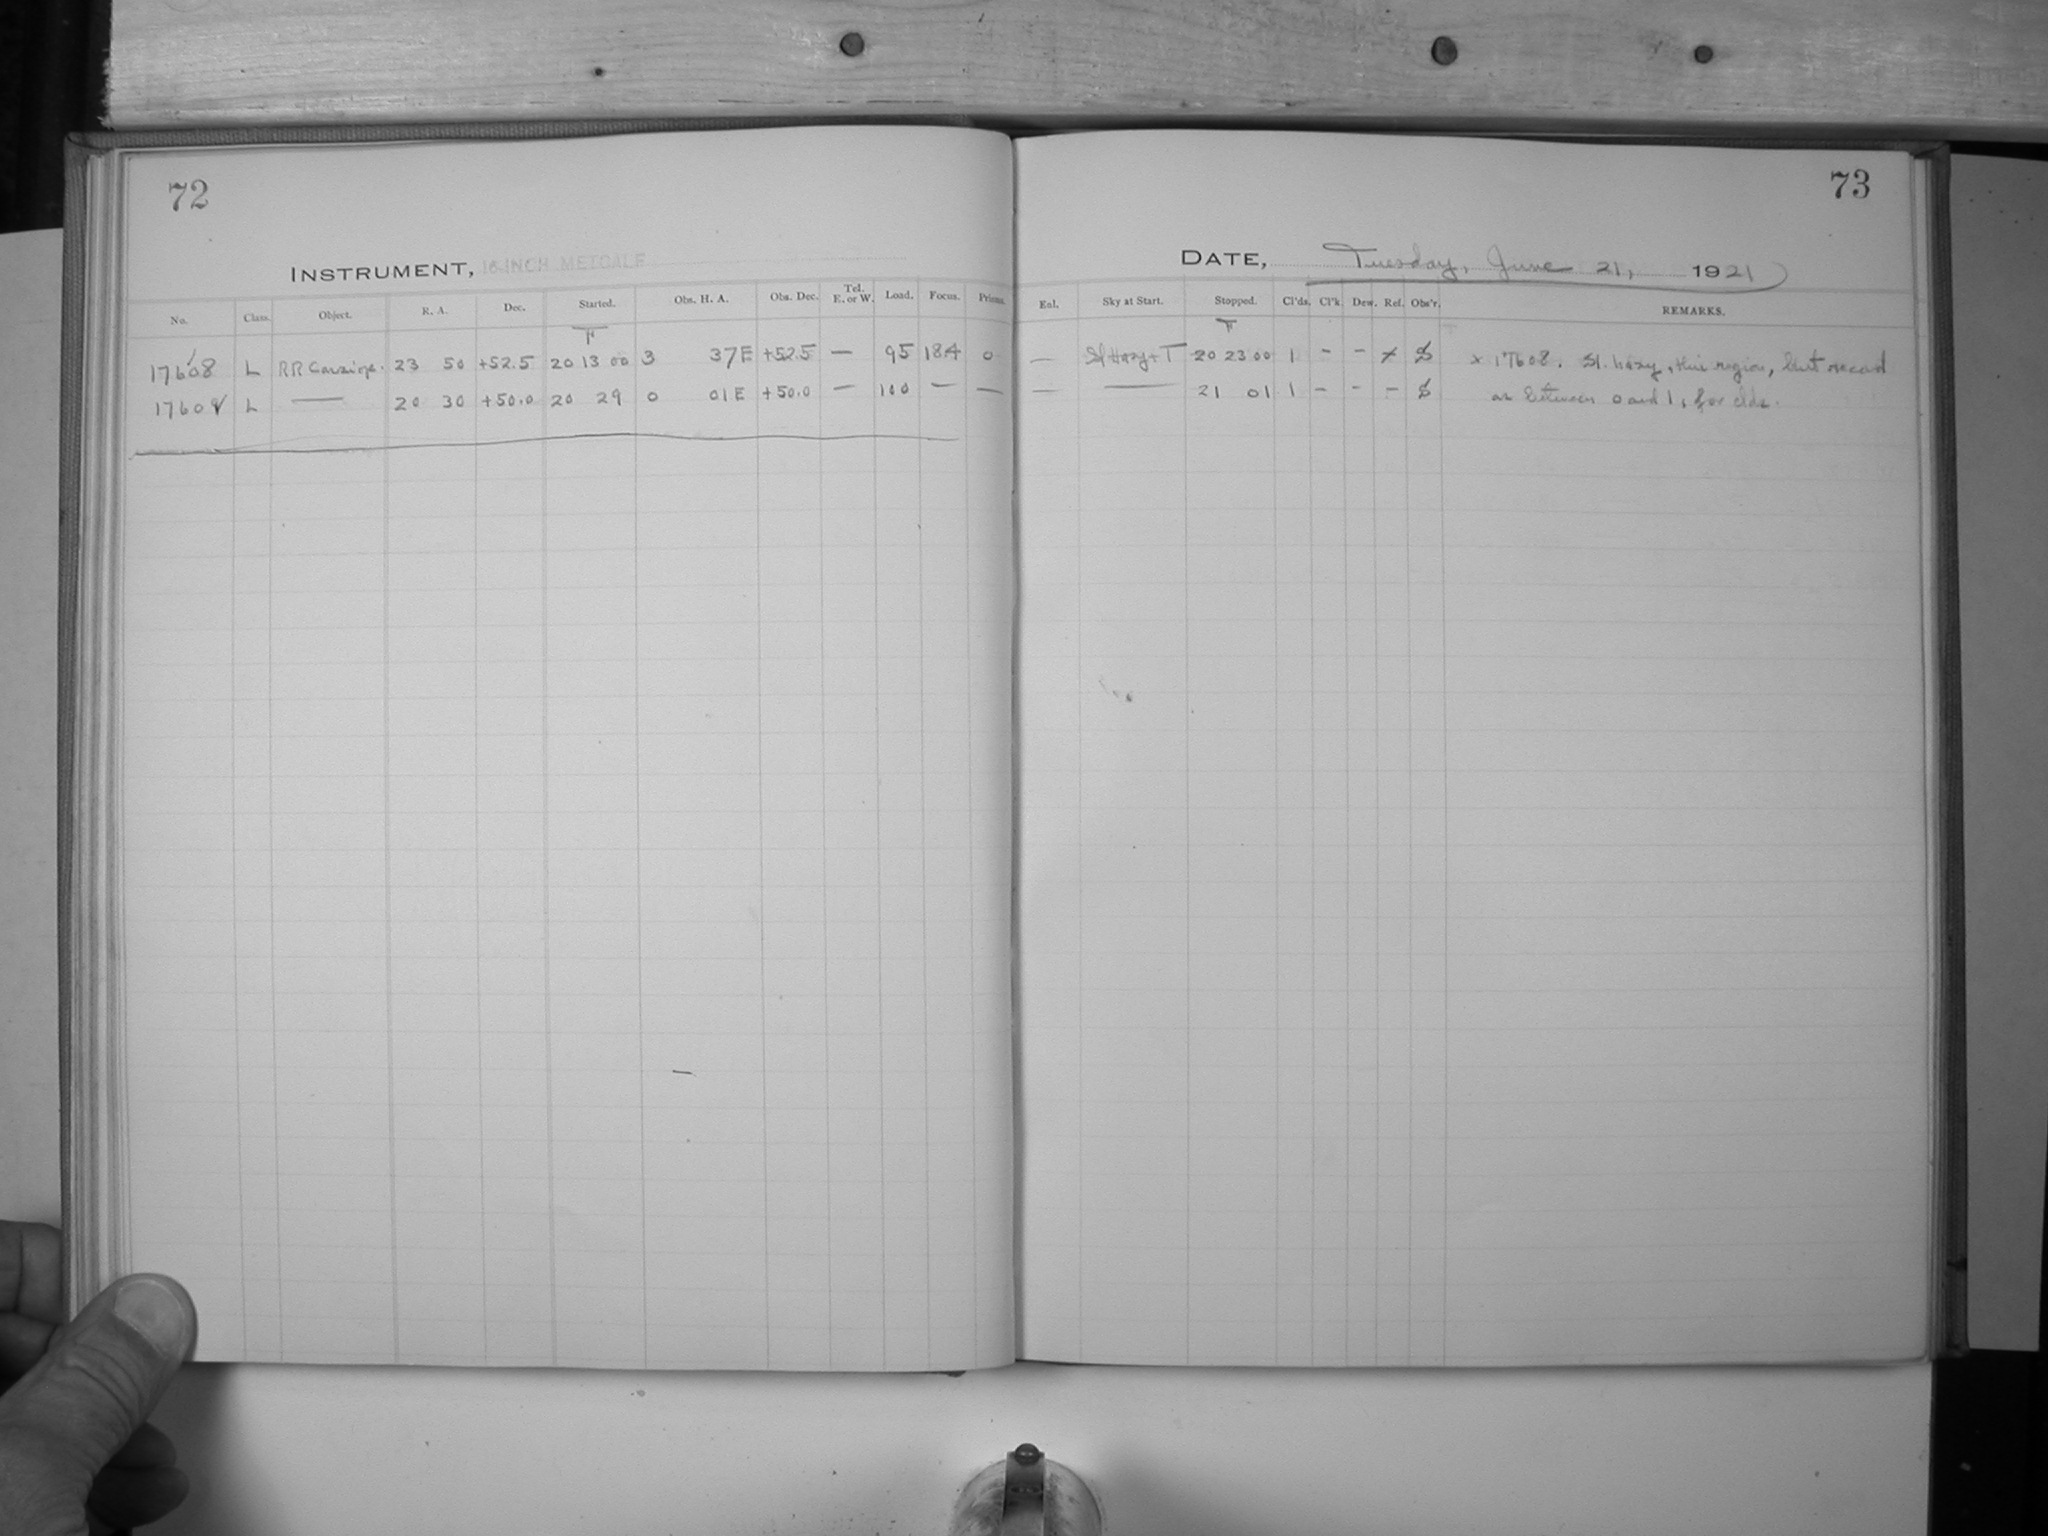 72
73
INSTRUMENT, 16-INCH METCALF
DATE, Tuesday, June 21, 1921
No. Class. Object. R. A. Dec. Started. Obs. H. A. Obs. Dec. Tel. E. or W. Load. Focus. Prisms. Enl. Sky at Start. Stopped. Cl'ds. Cl'k. Dew. Ref. Obs'r. REMARKS.
T T
17608 L RR Cassiop. 23 50 +52.5 20 13 00 3 37E +52.5 — 95 18.4 0 — Sl Hazy + T 20 23 00 1 - - x S x 17608. Sl. hazy, this region, but record
17609 L — 20 30 +50.0 20 29 0 01E +50.0 — 100 — — — — 21 01 1 - - - S as between 0 and 1, for clds.